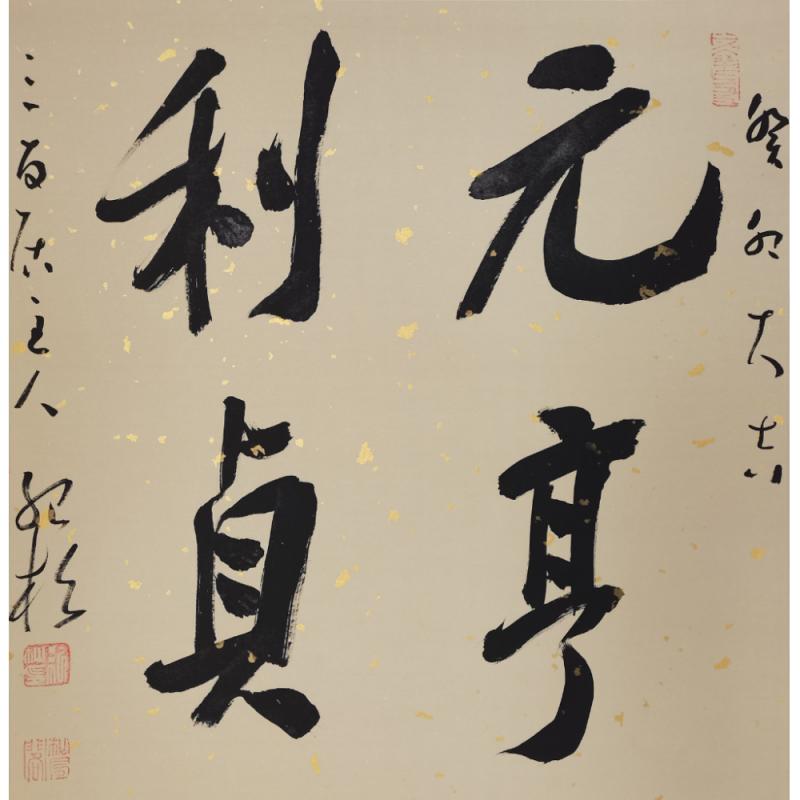 癸卯大吉
元亨
利貞
三百居主人